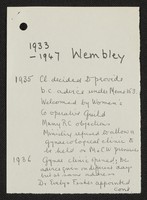 1933
– 1947 Wembley
1925 Cl decided to provide
b.c. advice under Memo 153.
Welcomed by Women's
Co operative Guild
Many R.C. objections
Ministry refused to allow a
gynaecological clinic to
be held in M & CW premises
1936 Gynae clinic opened; bc
advice given
but at same address
Dr Evelyn Fisher appointed
cont